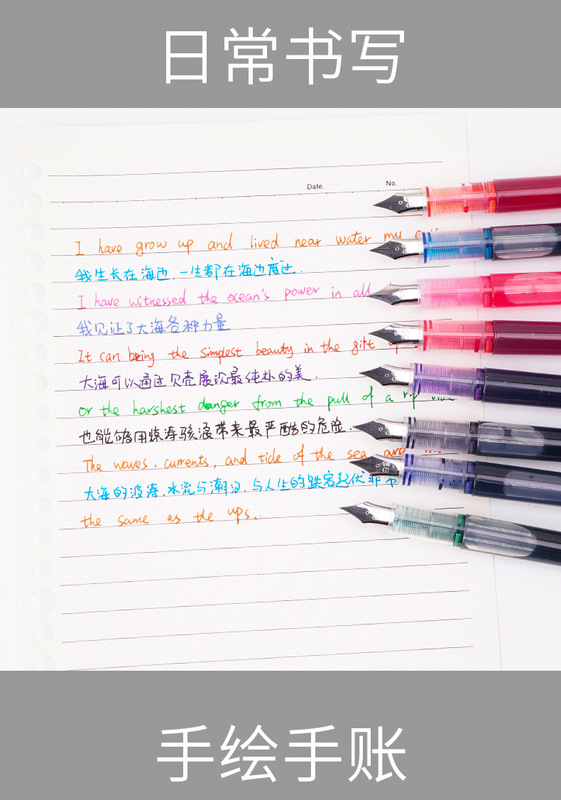 日常书写
Date. No.
I have grow up and lived near water my
我生长在海边,一生都在海边度过.
I have witnessed the ocean's power in all
我见证了大海各种力量
It can being the simplest beauty in the gift
大海可以通过贝壳展示最纯朴的美.
or the harshest danger from the pull of a rip
也能够用惊涛骇浪带来最严酷的危险.
The waves. currents, and tide of the sea are
大海的波涛.水流与潮汐.与人生的跌宕起伏非常
the same as the ups.
手绘手账